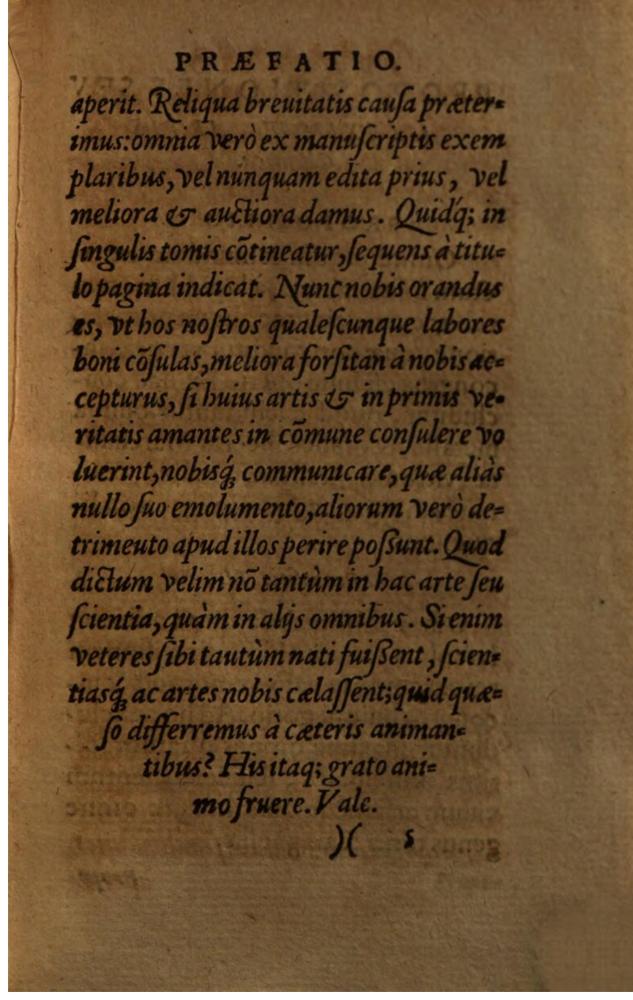 PRÆFATIO.
aperit. Reliqua breuitatis cauſa præter=
imus: omnia verò ex manuſcriptis exem
plaribus, vel nunquam edita prius, vel
meliora & auctiora damus. Quidq́; in
ſingulis tomis cõtineatur, ſequens à titu=
lo pagina indicat. Nunc nobis orandus
es, vt hos noſtros qualeſcunque labores
boni cõſulas, meliora forſitan à nobis ac=
cepturus, ſi huius artis & in primis ve=
ritatis amantes in cõmune conſulere vo
luerint, nobisq́; communicare, quæ aliàs
nullo ſuo emolumento, aliorum verò de=
trimeuto apud illos perire poſſunt. Quod
dictum velim nõ tantùm in hac arte ſeu
ſcientia, quàm in alijs omnibus. Si enim
veteres ſibi tautùm nati fuiſſent, ſcien=
tiasq́; ac artes nobis cælaſſent; quid quæ=
ſo differremus à cæteris animan=
tibus? His itaq; grato ani=
mo fruere. Vale.
)( s